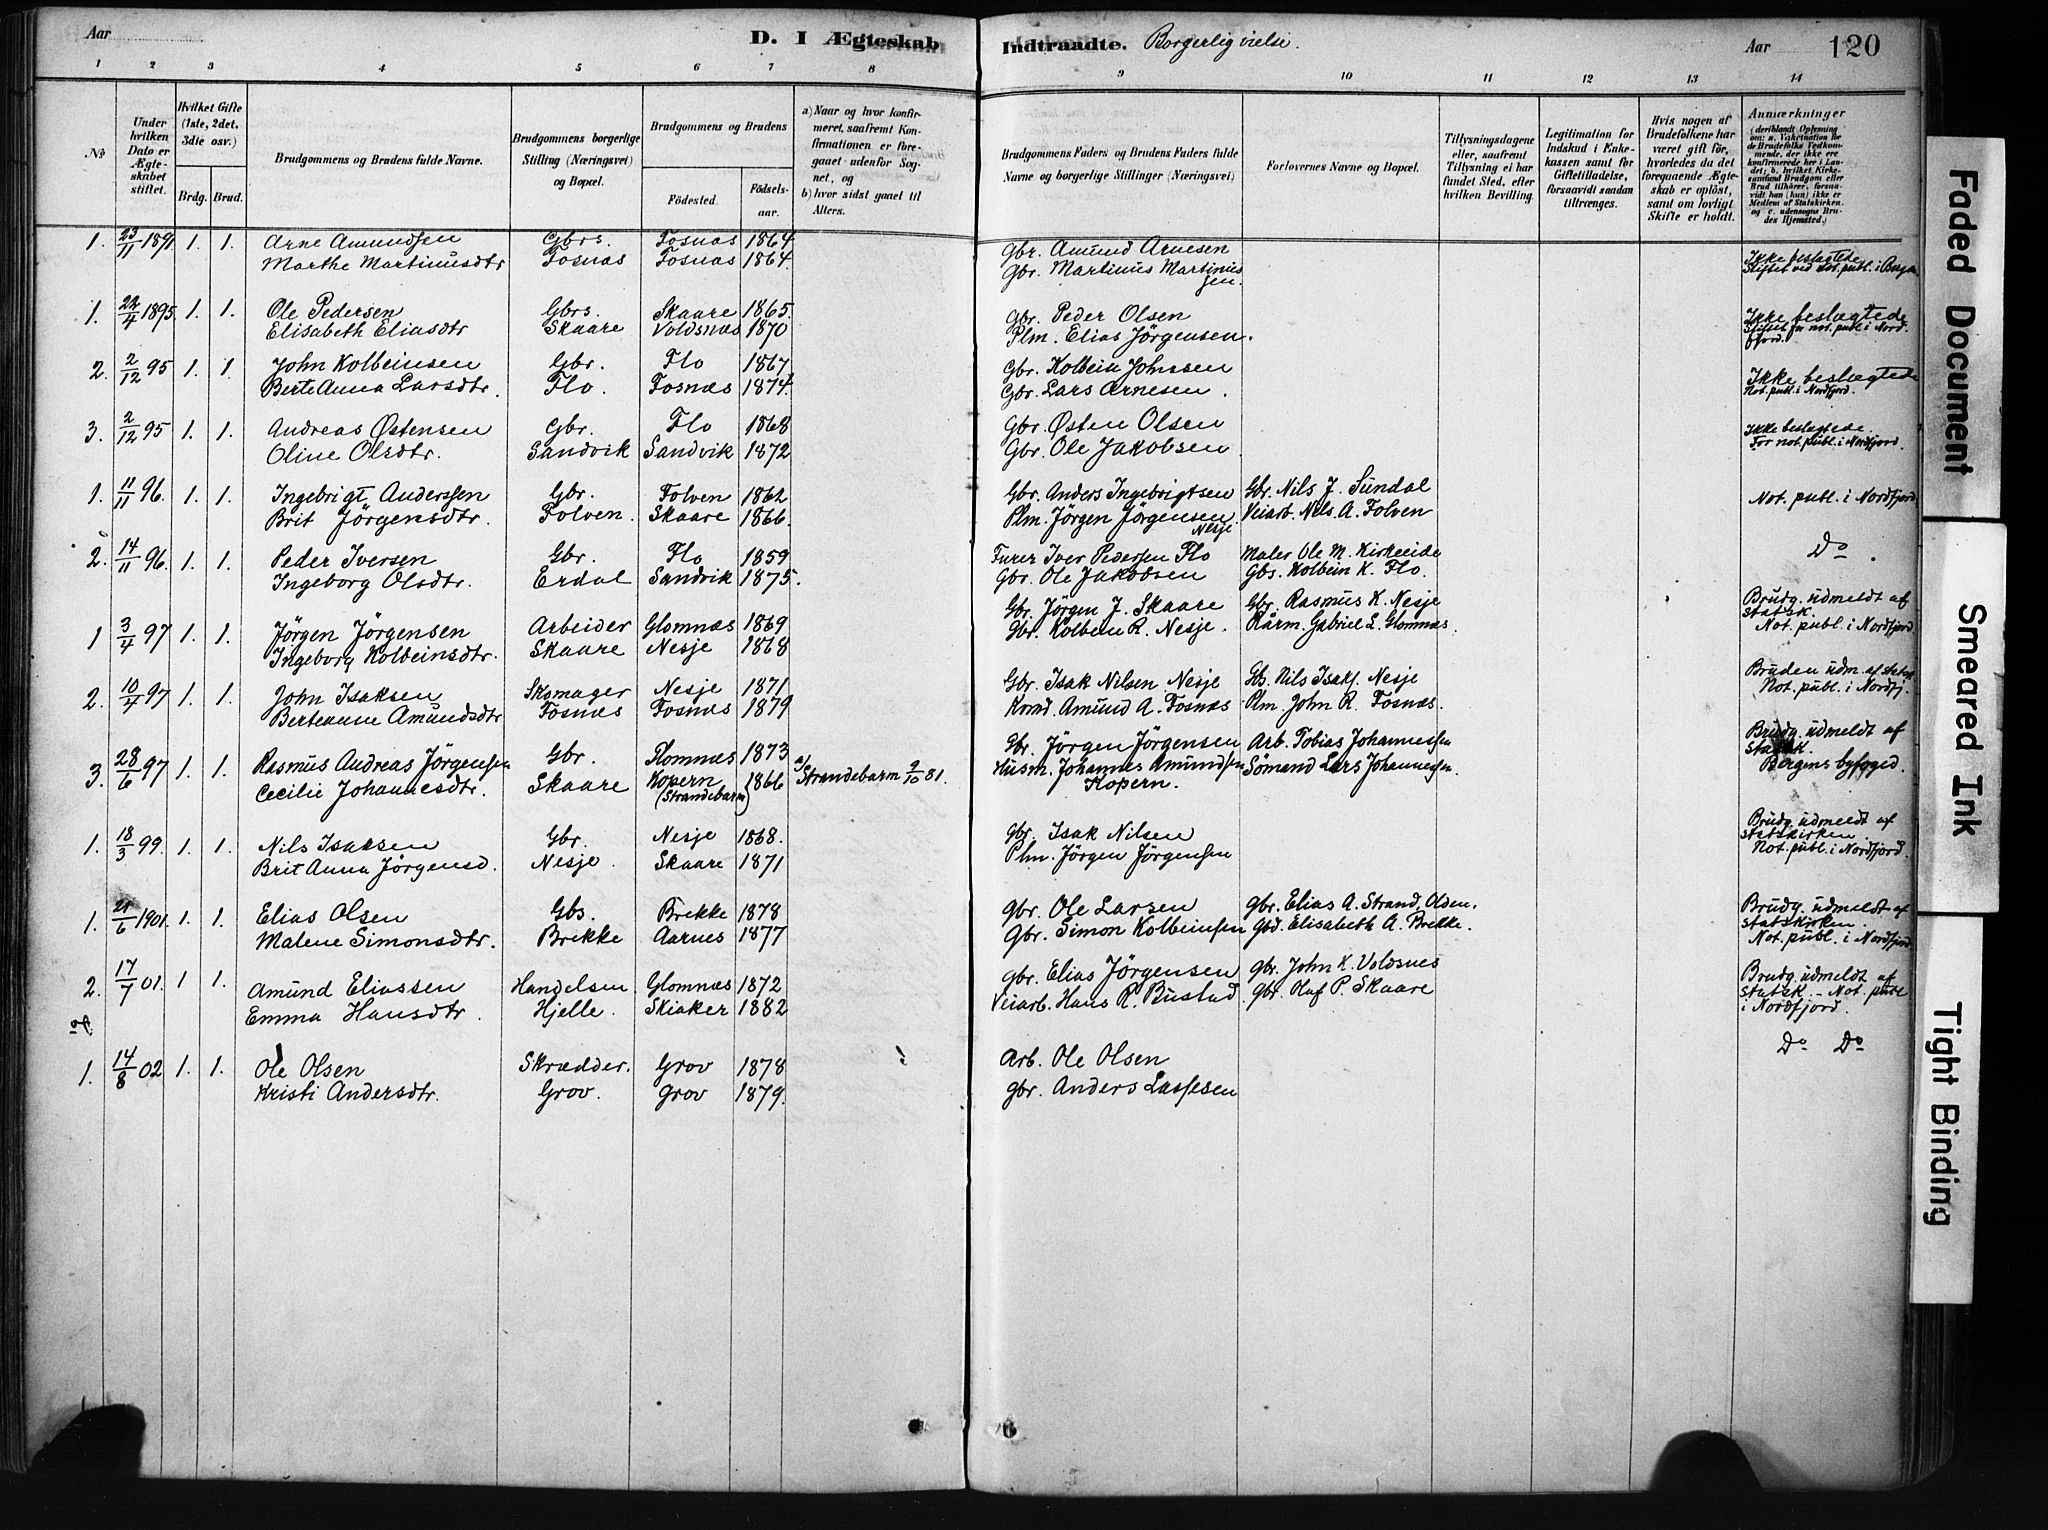 Aar D. I Ægteskab Indtraadte. Borgerlig vielse. Aar 120
1 2 3 4 5 6 7 8 9 10 11 12 13 14
No.
Under hvilken Dato er Ægteskabet stiftet.
Hvilket Gifte (1ste, 2det, 3die osv.)
Brdg. Brud.
Brudgommens og Brudens fulde Navne.
Brudgommens borgerlige Stilling (Næringsvei) og Bopæl.
Brudgommens og Brudens
Födested. Födselsaar.
a) Naar og hvor konfirmeret, saafremt Konfirmationen er foregaaet udenfor Sognet, og
b) hvor sidst gaaet til Alters.
Brudgommens Faders og Brudens Faders fulde Navne og borgerlige Stillinger (Næringsvei)
Forlovernes Navne og Bopæl.
Tillysningsdagene eller, saafremt Tillysning ei har fundet Sted, efter hvilken Bevilling.
Legitimation for Indskud i Enkekassen samt for Giftetilladelse, forsaavidt saadan tiltrænges.
Hvis nogen af Brudefolkene har været gift för, hvorledes da det foregaaende Ægteskab er oplöst, samt om lovligt Skifte er holdt.
Anmærkninger
(deriblandt Oplysning om: a. Vakcination for de Brudefolks Vedkommende, der ikke ere konfirmerede her i Landet; b. hvilket Kirkesamfund Brudgom eller Brud tilhörer, forsaavidt han (hun) ikke er Medlem af Statskirken, og c. udensogns Brudes Hjemsted.)
1. 23/11 1891 1. 1. Arne Amundsen Gbrs. Fosnæs 1864 Gbr. Amund Arnesen Ikke beslegtede
Marthe Martinusdtr Fosnæs Fosnæs 1864. Gbr. Martinus Martinussen. Stiftet ved not. publ. i Bergen
1. 22/4 1895. 1. 1. Ole Pedersen Gbrs. Skaare 1865. Gbr. Peder Olsen Ikke beslegtede
Elisabeth Eliasdtr Skaare Voldsnæs 1870 Plm. Elias Jörgensen. Stiftet for not. publ. i Nordfjord.
2. 2/12 95 1. 1 John Kolbeinsen Gbr. Flo 1867 Gbr. Kolbein Johnsen Ikke beslegtede
Berte Anna Larsdtr. Flo. Fosnæs 1874. Gbr. Lars Arnesen. Not. publ. i Nordfjord.
3. 2/12 95 1. 1. Andreas Østensen Gbr. Flo 1868 Gbr. Østen Olsen Ikke beslegtede.
Oline Olsdtr. Sandvik Sandvik 1872 Gbr. Ole Jakobsen For not. publ. i Nordfjord
1. 11/11 96. 1. 1. Ingebrigt Anderssen Gbr. Folven 1862 Gbr. Anders Ingebrigtsen Gbr. Nils J. Sundal Not. publ. i Nordfjord
Brit Jörgensdtr. Folven. Skaare 1866. Plm. Jörgen Jörgensen Nesje Veiarb. Nils A. Folven
2. 14/11 96. 1. 1. Peder Iversen Gbr. Flo 1859 Furer Iver Pedersen Flo Maler Ole M. Kirkeeide Do
Ingeborg Olsdtr. Erdal Sandvik 1875. Gbr. Ole Jakobsen Gbs. Kolbein K. Flo.
1 3/4 97 1. 1. Jörgen Jörgensen Arbeider Glomnæs 1869 Gbr. Jörgen J. Skaare Gbr. Rasmus K. Nesje Brudg. udmeldt af statsk.
Ingeborg Kolbeinsdtr. Skaare Nesje 1868 Gbr. Kolbein R. Nesje. Kårm. Gabriel L. Glomnæs. Not. publ. i Nordfjord
2. 10/4 97 1. 1. John Isaksen Skomager Nesje 1871 Gbr. Isak Nilsen Nesje Gbs. Nils Isaks. Nesje Bruden udm. af statsk.
Berteanne Amundsdtr Fosnæs Fosnæs 1879 Kond. Amund A. Fosnæs Plm. John R. Fosnæs. Not. publ. i Nordfj.
3. 28/6 97 1. 1. Rasmus Andreas Jörgensen Gbr. Glomnæs 1873 Gbr. Jörgen Jörgensen Arb. Tobias Johannessen Brudg. udmeldt af statsk.
Cecilie Johannesdtr. Skaare Kopern (Strandebarm) 1866 a/ Strandebarm 9/10 81. Husm. Johannes Amundsen Kopern. Sømand Lars Johannesen. Bergens byfoged.
1. 18/3 99. 1. 1. Nils Isaksen Gbr. Nesje 1868. Gbr. Isak Nilsen Brudg. udmeldt af statskirken.
Brit Anna Jörgensd. Nesje. Skaare 1871 Plm. Jörgen Jörgensen Not. publ. i Nordfjord.
1. 21/6 1901. 1. 1. Elias Olsen Gbs. Brekke 1878 Gbr. Ole Larsen Gbr. Elias A. Strand, Olsen. Brudg. udmeldt af statskirken.
Malene Simonsdtr. Brekke Aarnes 1877 Gbr. Simon Kolbeinsen Gbd. Elisabeth A. Brekke. Not. publ. i Nordfjord
2. 17/7 01. 1 1. Amund Eliassen Handelsm Glomnæs 1872 Gbr. Elias Jörgensen Gbr. John K. Voldsnes Brudg. udmeldt af statsk. - Not. publ i Nordfjord.
Emma Hansdtr. Hjelle. Skiaker 1882 Veiarb. Hans R. Bustad Gbr. Olaf P. Skaare
1. 14/8 02 1. 1. Ole Olsen Skrædder. Grov 1878 Arb. Ole Olsen Do Do
Kristi Andersdtr. Grov. Grov 1879. Gbr. Anders Lassesen
Faded Document
Smeared Ink
Tight Binding